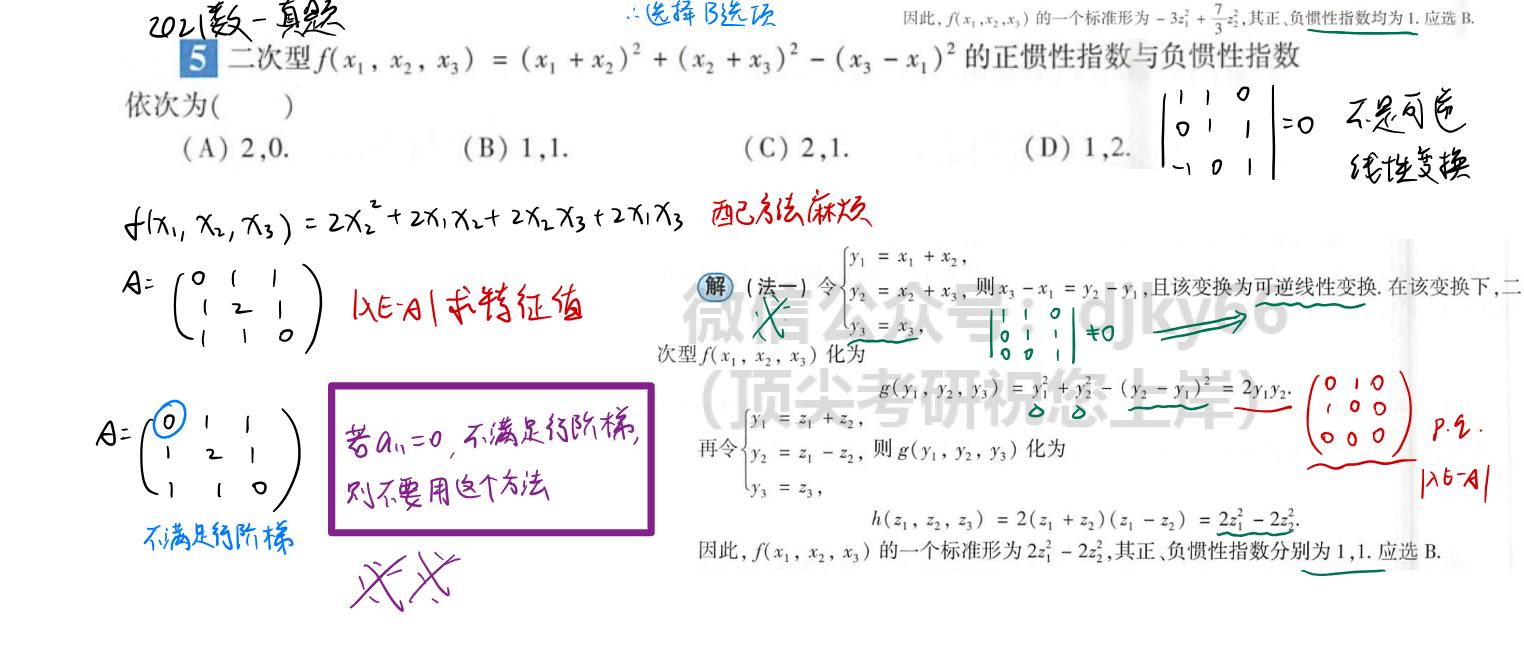 2021数一真题
∴选择B选项
因此, f(x₁,x₂,x₃) 的一个标准形为 −3z₁² + 7/3 z₂², 其正、负惯性指数均为 1. 应选 B.
5 二次型 f(x₁, x₂, x₃) = (x₁ + x₂)² + (x₂ + x₃)² − (x₃ − x₁)² 的正惯性指数与负惯性指数
依次为(　　)
(A) 2,0.　(B) 1,1.　(C) 2,1.　(D) 1,2.
| 1 1 0 |
| 0 1 1 | =0 不是可逆
| -1 0 1 | 线性变换
f(x₁, x₂, x₃) = 2x₂² + 2x₁x₂ + 2x₂x₃ + 2x₁x₃ 配方法麻烦
A= ( 0 1 1
1 2 1
1 1 0 )
|λE-A| 求特征值
A= ( 0 1 1
1 2 1
1 1 0 )
不满足行阶梯
若a₁₁=0, 不满足行阶梯,
则不要用这个方法
微信公众号: djky66
(顶尖考研祝您上岸)
解 (法一) 令 { y₁ = x₁ + x₂,
y₂ = x₂ + x₃, 则 x₃ − x₁ = y₂ − y₁, 且该变换为可逆线性变换. 在该变换下, 二
y₃ = x₃,
| 1 1 0 |
| 0 1 1 | ≠0
| 0 0 1 |
次型 f(x₁, x₂, x₃) 化为
g(y₁, y₂, y₃) = y₁² + y₂² − (y₂ − y₁)² = 2y₁y₂.
( 0 1 0
1 0 0
0 0 0 )
p.q.
|λE-A|
再令 { y₁ = z₁ + z₂,
y₂ = z₁ − z₂, 则 g(y₁, y₂, y₃) 化为
y₃ = z₃,
h(z₁, z₂, z₃) = 2(z₁ + z₂)(z₁ − z₂) = 2z₁² − 2z₂².
因此, f(x₁, x₂, x₃) 的一个标准形为 2z₁² − 2z₂², 其正、负惯性指数分别为 1,1. 应选 B.